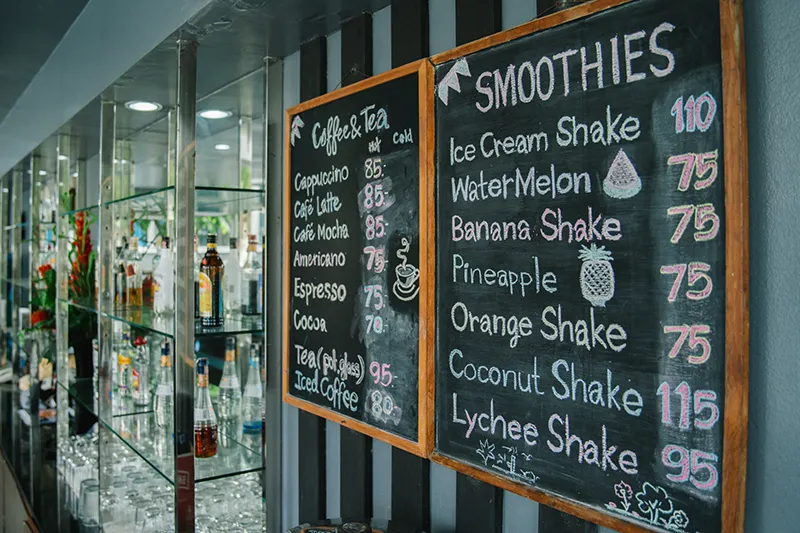 Coffee & Tea
Hot Cold
Cappuccino 85.-
Café Latte 85.-
Café Mocha 85.-
Americano 75.-
Espresso 75.-
Cocoa 70.-
Tea (pot, glass) 95.-
Iced Coffee 80.-
SMOOTHIES
Ice Cream Shake 110
WaterMelon 75
Banana Shake 75
Pineapple 75
Orange Shake 75
Coconut Shake 115
Lychee Shake 95